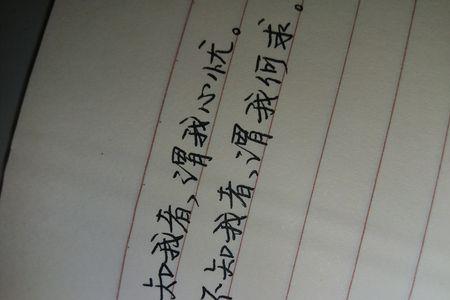 知我者,谓我心忧。
不知我者,谓我何求。